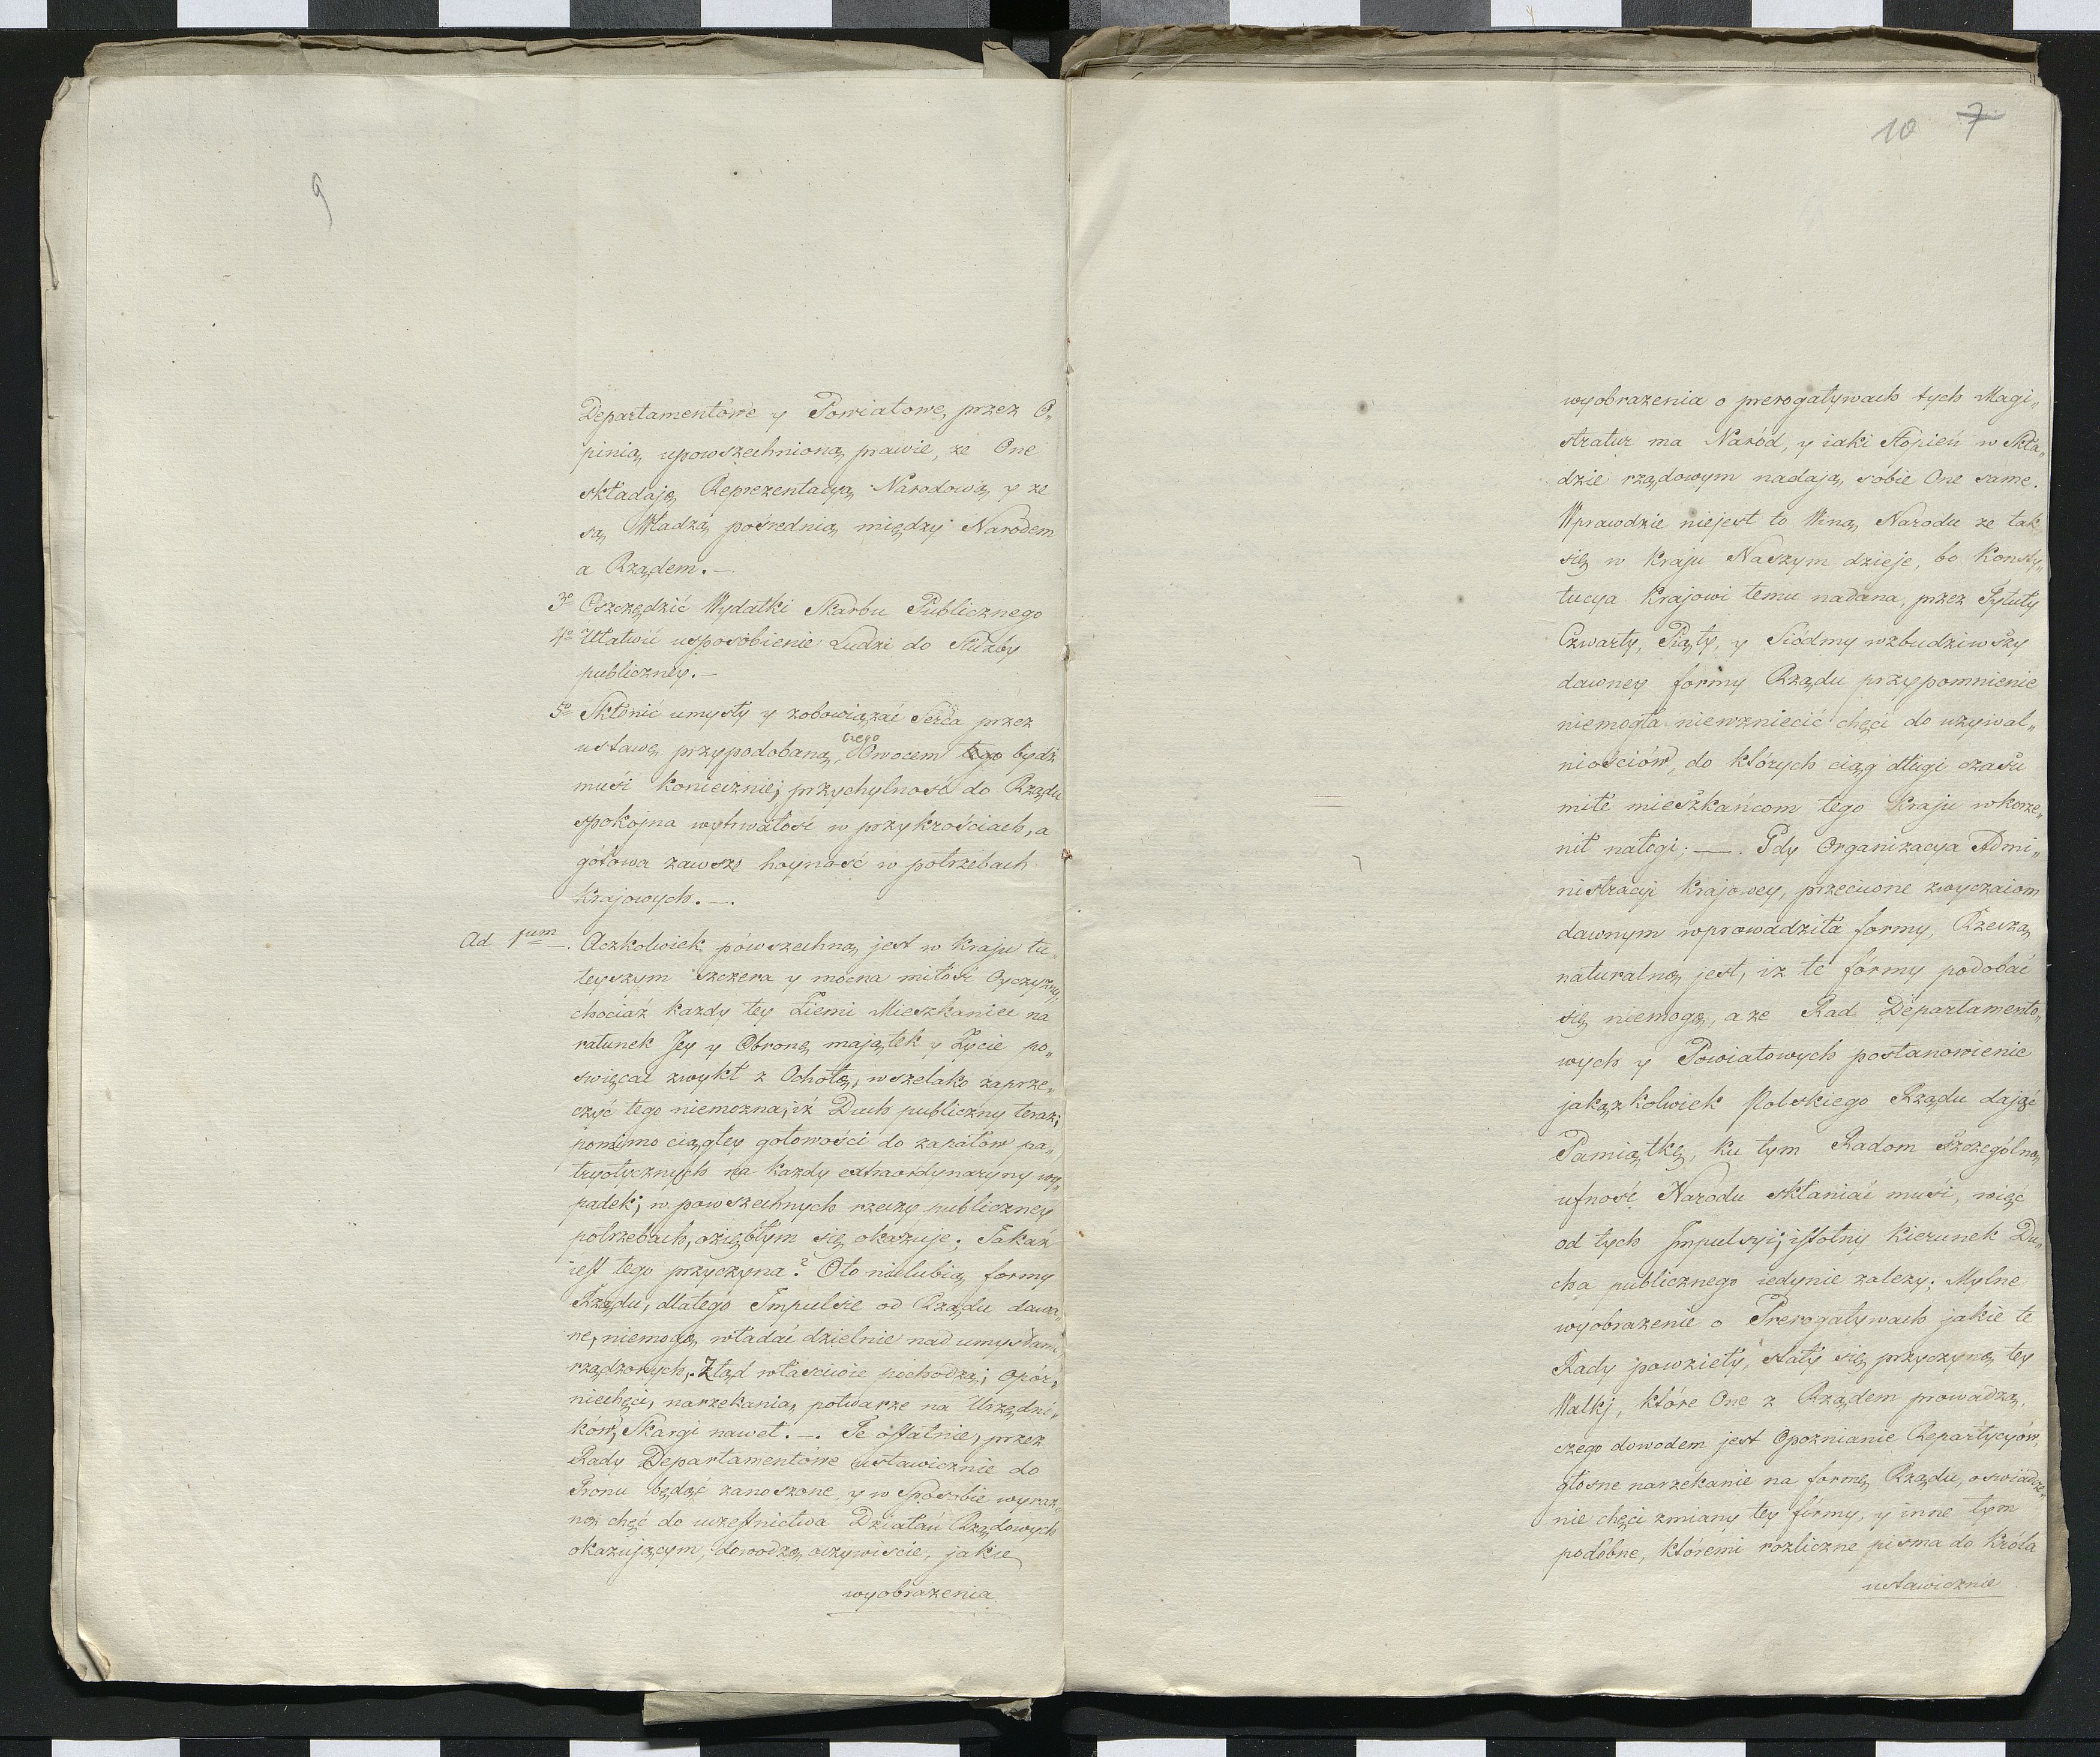 9
Departamentowe y Powiatowe, przez O„
pinią upowszechnioną prawie, że One
składają Reprezentacyą Narodową y że
są Władzą pośrednią między Narodem
a Rządem.—
3o Oszczędzić Wydatki Skarbu Publicznego
4o Ułatwić usposobienie Ludzi do Służby
publiczney.—
5o Skłonić umysły y zobowiązać Serca przez
ustawę przypodobaną, czego Owocem tego bydź
musi koniecznie; przychylność do Rządu
spokojna wytrwałość w przykrościach, a
gotowa zawsze hoyność w potrzebach
krajowych.—.
Ad 1um—. Aczkolwiek powszechną jest w kraju tu„
teyszym szczera y mocna miłość Oyczyzny,
chociaż każdy tey Ziemi Mieszkaniec na
ratunek Jey y Obronę majątek y Życie po„
święcać zwykł z Ochotą, wszelako zaprze„
czyć tego niemożna, iż Duch publiczny teraz;
pomimo ciągłey gotowości do zapałów pa„
tryotycznych na każdy extraordynaryiny wy„
padek; w powszechnych rzeczy publiczney
potrzebach, oziębłym się okazuje; Jakaż
iest tego przyczyna? Oto nielubią formy
Rządu, dlatego Impulsie od Rządu dawa„
ne, niemogą władać dzielnie nad umysłami
rządzonych, Ztąd właściwie pochodzą; opór„
niechęci, narzekania, potwarze na Urzędni„
ków, Skargi nawet.—. Te ostatnie, przez
Rady Departamentowe ustawicznie do
Tronu będąc zanoszone, y w Sposobie wyraź„
ną chęć do uczestnictwa Działań Rządowych
okazującym, dowodzą oczywiście, jakie
wyobrażenia
10 7
wyobrażenia o prerogatywach tych Magi„
stratur ma Naród, y iaki Stopień w Skła„
dzie rządowym nadają sobie One same.
Wprawdzie niejest to Winą Narodu że tak
się w kraju Naszym dzieje, bo Konsty„
tucya Krajowi temu nadana, przez Tytuły
Czwarty, Piąty, y Siódmy wzbudziwszy
dawney formy Rządu przypomnienie
niemogła niewzniecić chęci do używal„
niościów, do których ciąg długi czasu
miłe mieszkańcom tego kraju wkorze„
nił nałogi;—. Gdy Organizacya Admi„
nistracyi krajowey, przeciwne zwyczaiom
dawnym wprowadziła formy, Rzeczą
naturalną jest, iż te formy podobać
się niemogą, a że Rad Departamento„
wych y Powiatowych postanowienie
jakążkolwiek Polskiego Rządu dając
Pamiątkę, ku tym Radom szczególną
ufność Narodu skłaniać musi, więc
od tych Impulsyi, istotny kierunek Du„
cha publicznego iedynie zależy; Mylne
wyobrażenie o Prerogatywach jakie te
Rady powzięły, stały się przyczyną tey
Walki, które One z Rządem prowadzą,
czego dowodem jest Opoznianie Repartycyów,
głosne narzekanie na formę Rządu, oswiadcze„
nie chęci zmiany tey formy, y inne tym
podobne, któremi rozliczne pisma do Króla
ustawicznie